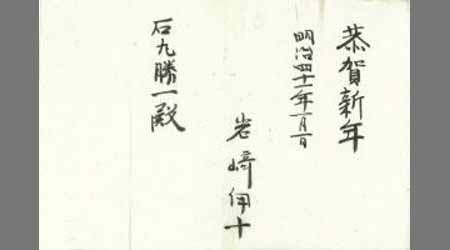 恭賀新年
明治四十一年一月一日
岩﨑伊十
石九勝一殿